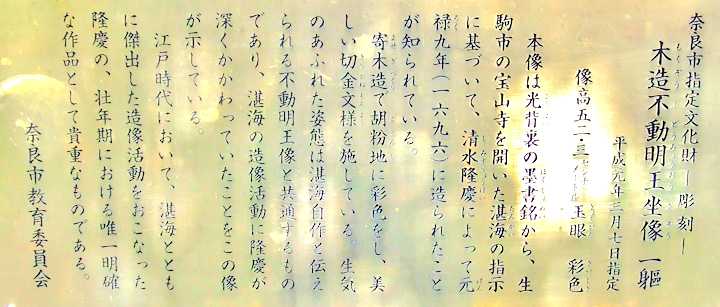 奈良市指定文化財―彫刻―
木造不動明王坐像 一軀
平成元年三月七日指定
像高五二・三センチメートル 玉眼 彩色
本像は光背裏の墨書銘から、生
駒市の宝山寺を開いた湛海の指示
に基づいて、清水隆慶によって元
禄九年(一六九六)に造られたこと
が知られている。
寄木造で胡粉地に彩色をし、美
しい切金文様を施している。生気
のあふれた姿態は湛海自作と伝え
られる不動明王像と共通するもの
であり、湛海の造像活動に隆慶が
深くかかわっていたことをこの像
が示している。
江戸時代において、湛海ととも
に傑出した造像活動をおこなった
隆慶の、壮年期における唯一明確
な作品として貴重なものである。
奈良市教育委員会